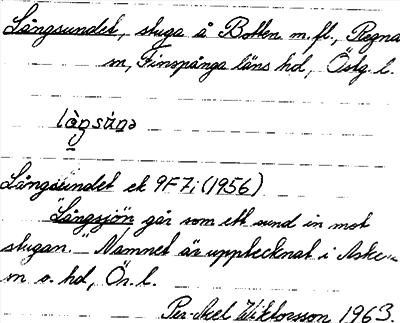 Långsundet, stuga å Botten m. fl., Regna
sn, Finspånga läns hd, Östg. l.
là̱ŋsúnə
Långsundet ek 9F7i (1956)
"Långsjön går som ett sund in mot
stugan." Namnet är upptecknat i Asker
sn o. hd, Ör. l.
Per-Axel Wiktorsson 1963.